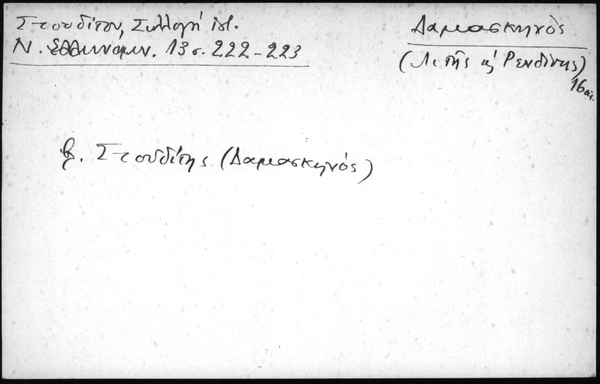 Στουδίτου, Συλλογή
Ν. Ἑλληνομν. 13 σ. 222-223
Δαμασκηνὸς
(Λιτῆς κ Ρενδίνης)
16 αἰ.
β. Στουδίτης (Δαμασκηνός)